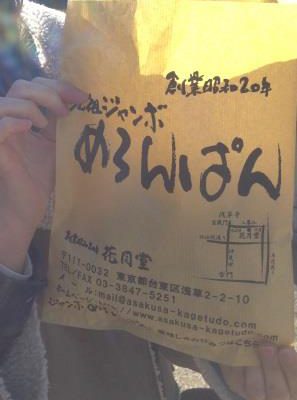 創業昭和20年
元祖ジャンボ
めろんぱん
浅草寺
花月堂
雷門
花月堂
〒111-0032 東京都台東区浅草2-2-10
TEL/FAX 03-3847-5251
メール:mail@asakusa-kagetudo.com
ホームページ://www.asakusa-kagetudo.com
ジャンボめろ
こちら